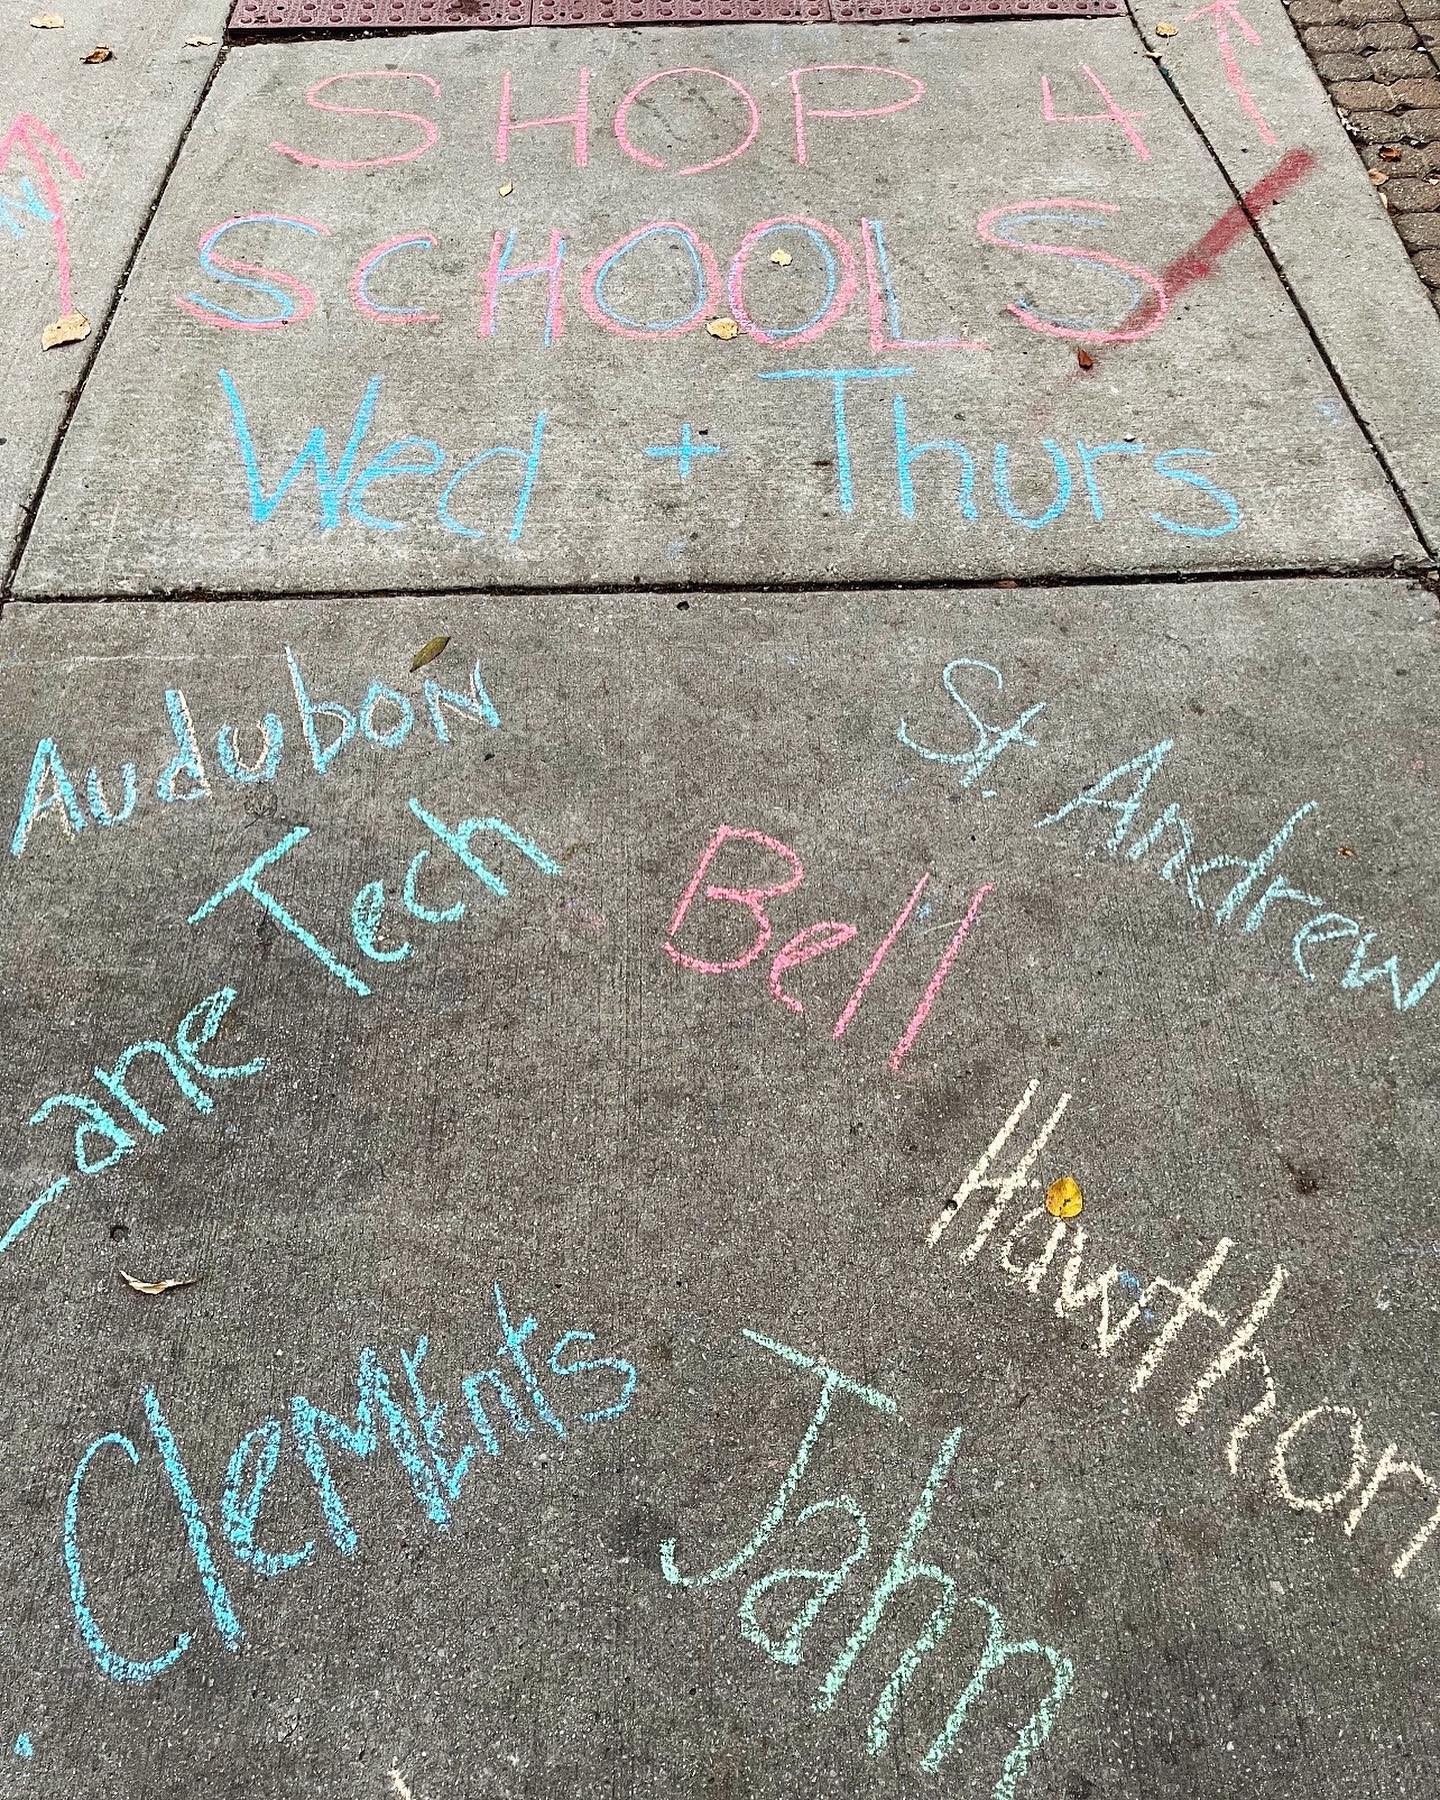 SHOP 4
SCHOOLS
Wed + Thurs
Audubon
St. Andrew
Lane Tech
Bell
Hawthorn
Clements
Jahn